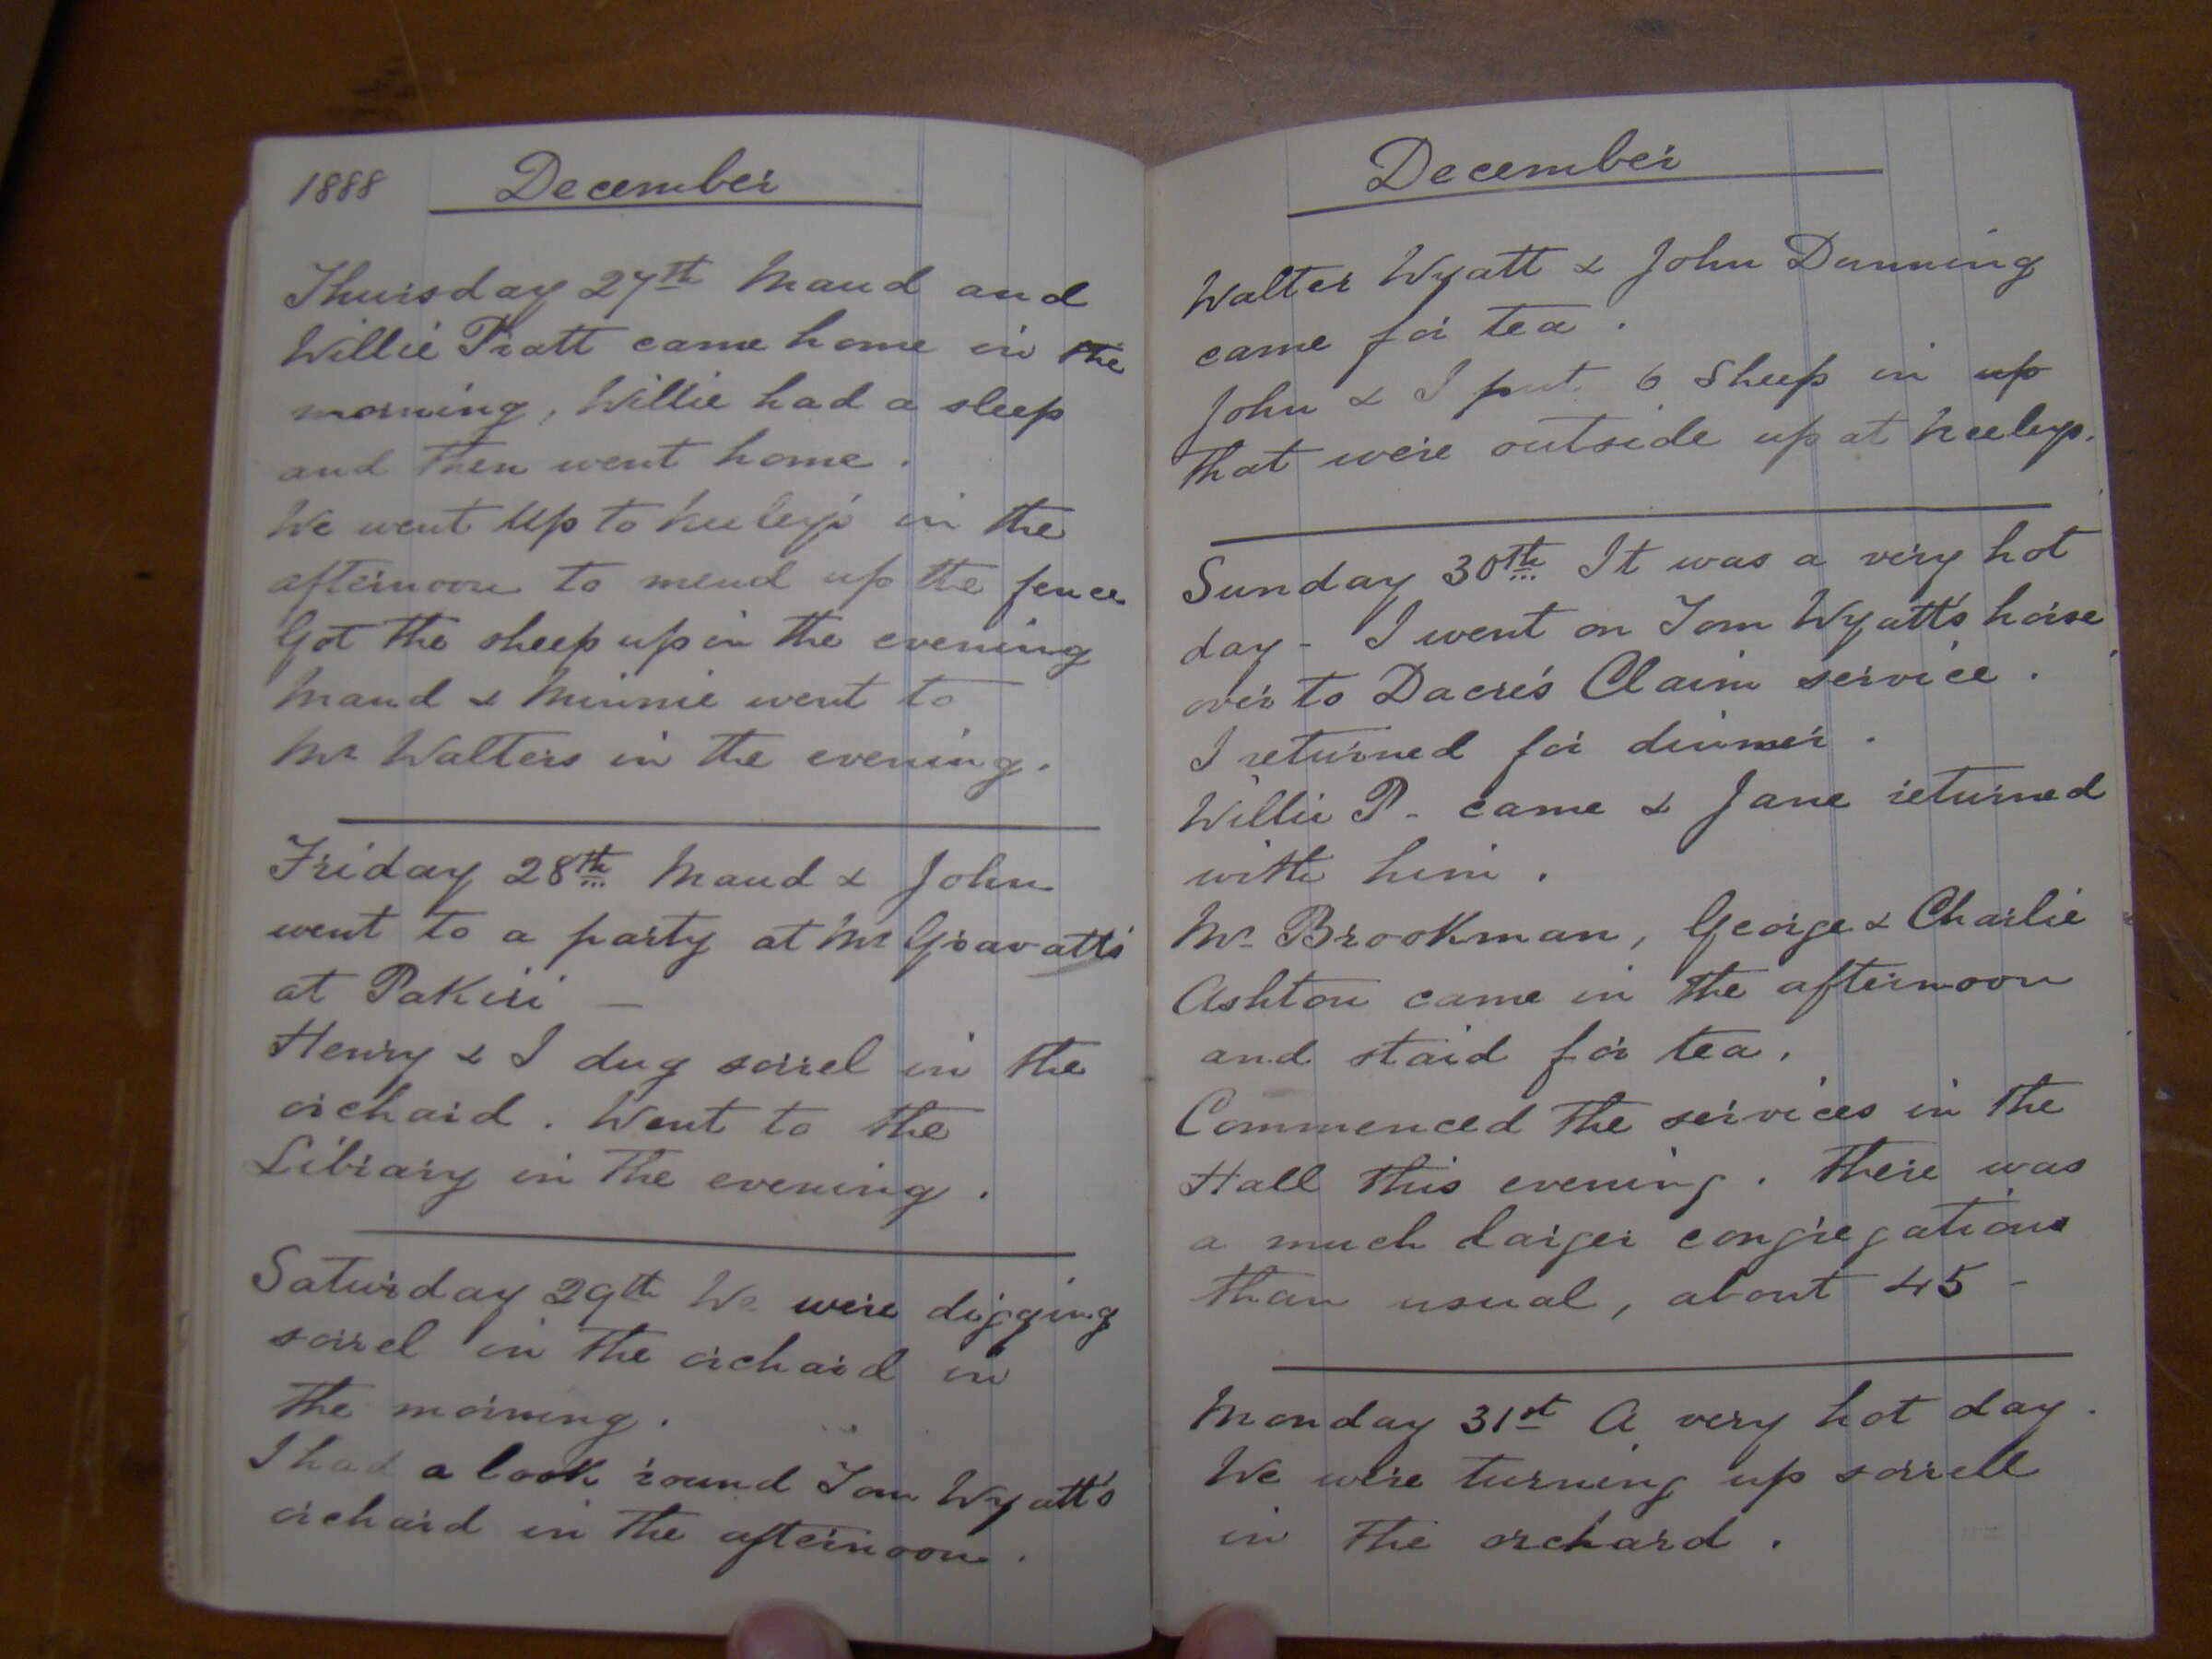 1888 December
Thursday 27th Maud and
Willie Pratt came home in the
morning, Willie had a sleep
and then went home.
We went up to Keeley's in the
afternoon to mend up the fence
Got the sheep up in the evening
Maud & Minnie went to
Mr Walters in the evening.
Friday 28th Maud & John
went to a party at Mr Gravatt's
at Pakiri —
Henry & I dug sorrel in the
orchard. Went to the
Library in the evening.
Saturday 29th We were digging
sorrel in the orchard in
the morning.
I had a look round Tom Wyatt's
orchard in the afternoon.
December
Walter Wyatt & John Dunning
came for tea.
John & I put 6 sheep in up
that were outside up at Keeleys.
Sunday 30th It was a very hot
day - I went on Tom Wyatt's horse
over to Dacre's Claim service.
I returned for dinner.
Willie P. came & Jane returned
with him.
Mr Brookman, George & Charlie
Ashton came in the afternoon
and staid for tea.
Commenced the services in the
Hall this evening. There was
a much larger congregations
than usual, about 45 -
Monday 31st A very hot day.
We were turning up sorrell
in the orchard.